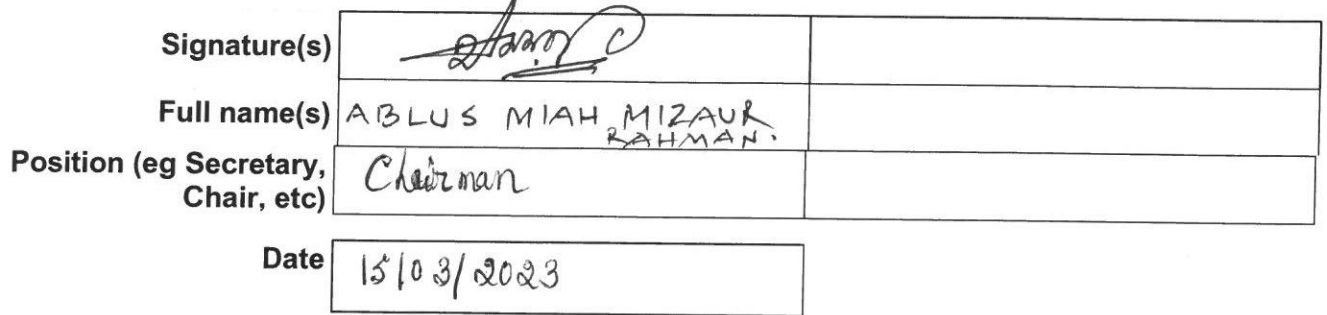 Signature(s)
Full name(s) ABLUS MIAH MIZAUR
RAHMAN.
Position (eg Secretary, Chairman
Chair, etc)
Date 15/03/2023